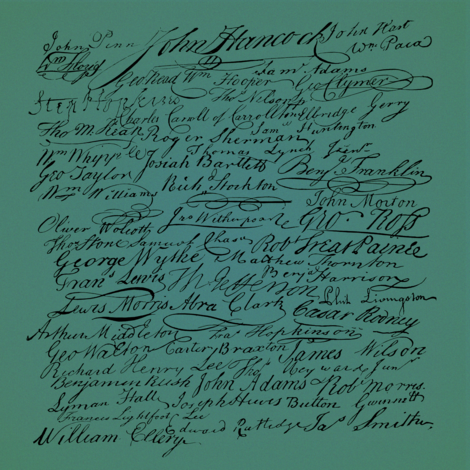 John Penn John Hancock John Hart
Wm Hooper Wm Paca
Geo Read Wm Hooper Saml Adams
Geo Clymer
Step Hopkins Tho Nelson jr
Charles Carroll of Carrollton Elbridge Gerry
Tho M. Kean Roger Sherman Saml Huntington
Wm Whipple Thomas Lynch Junr
Geo Taylor Josiah Bartlett Benj. Franklin
Wm Williams Richd Stockton John Morton
Oliver Wolcott Jno Witherspoon Geo Ross
Thos Stone Samuel Chase Robt Treat Paine
George Wythe Matthew Thornton
Frans Lewis Th Jefferson Benj Harrison
Lewis Morris Abra Clark Phil Livingston
Caesar Rodney
Arthur Middleton Fras Hopkinson
Geo Walton Carter Braxton James Wilson
Richard Henry Lee Thos Heyward Junr
Benjamin Rush John Adams Rob Morris.
Lyman Hall Joseph Hewes Button Gwinnett
Francis Lightfoot Lee
William Ellery Edward Rutledge Jas Smith.